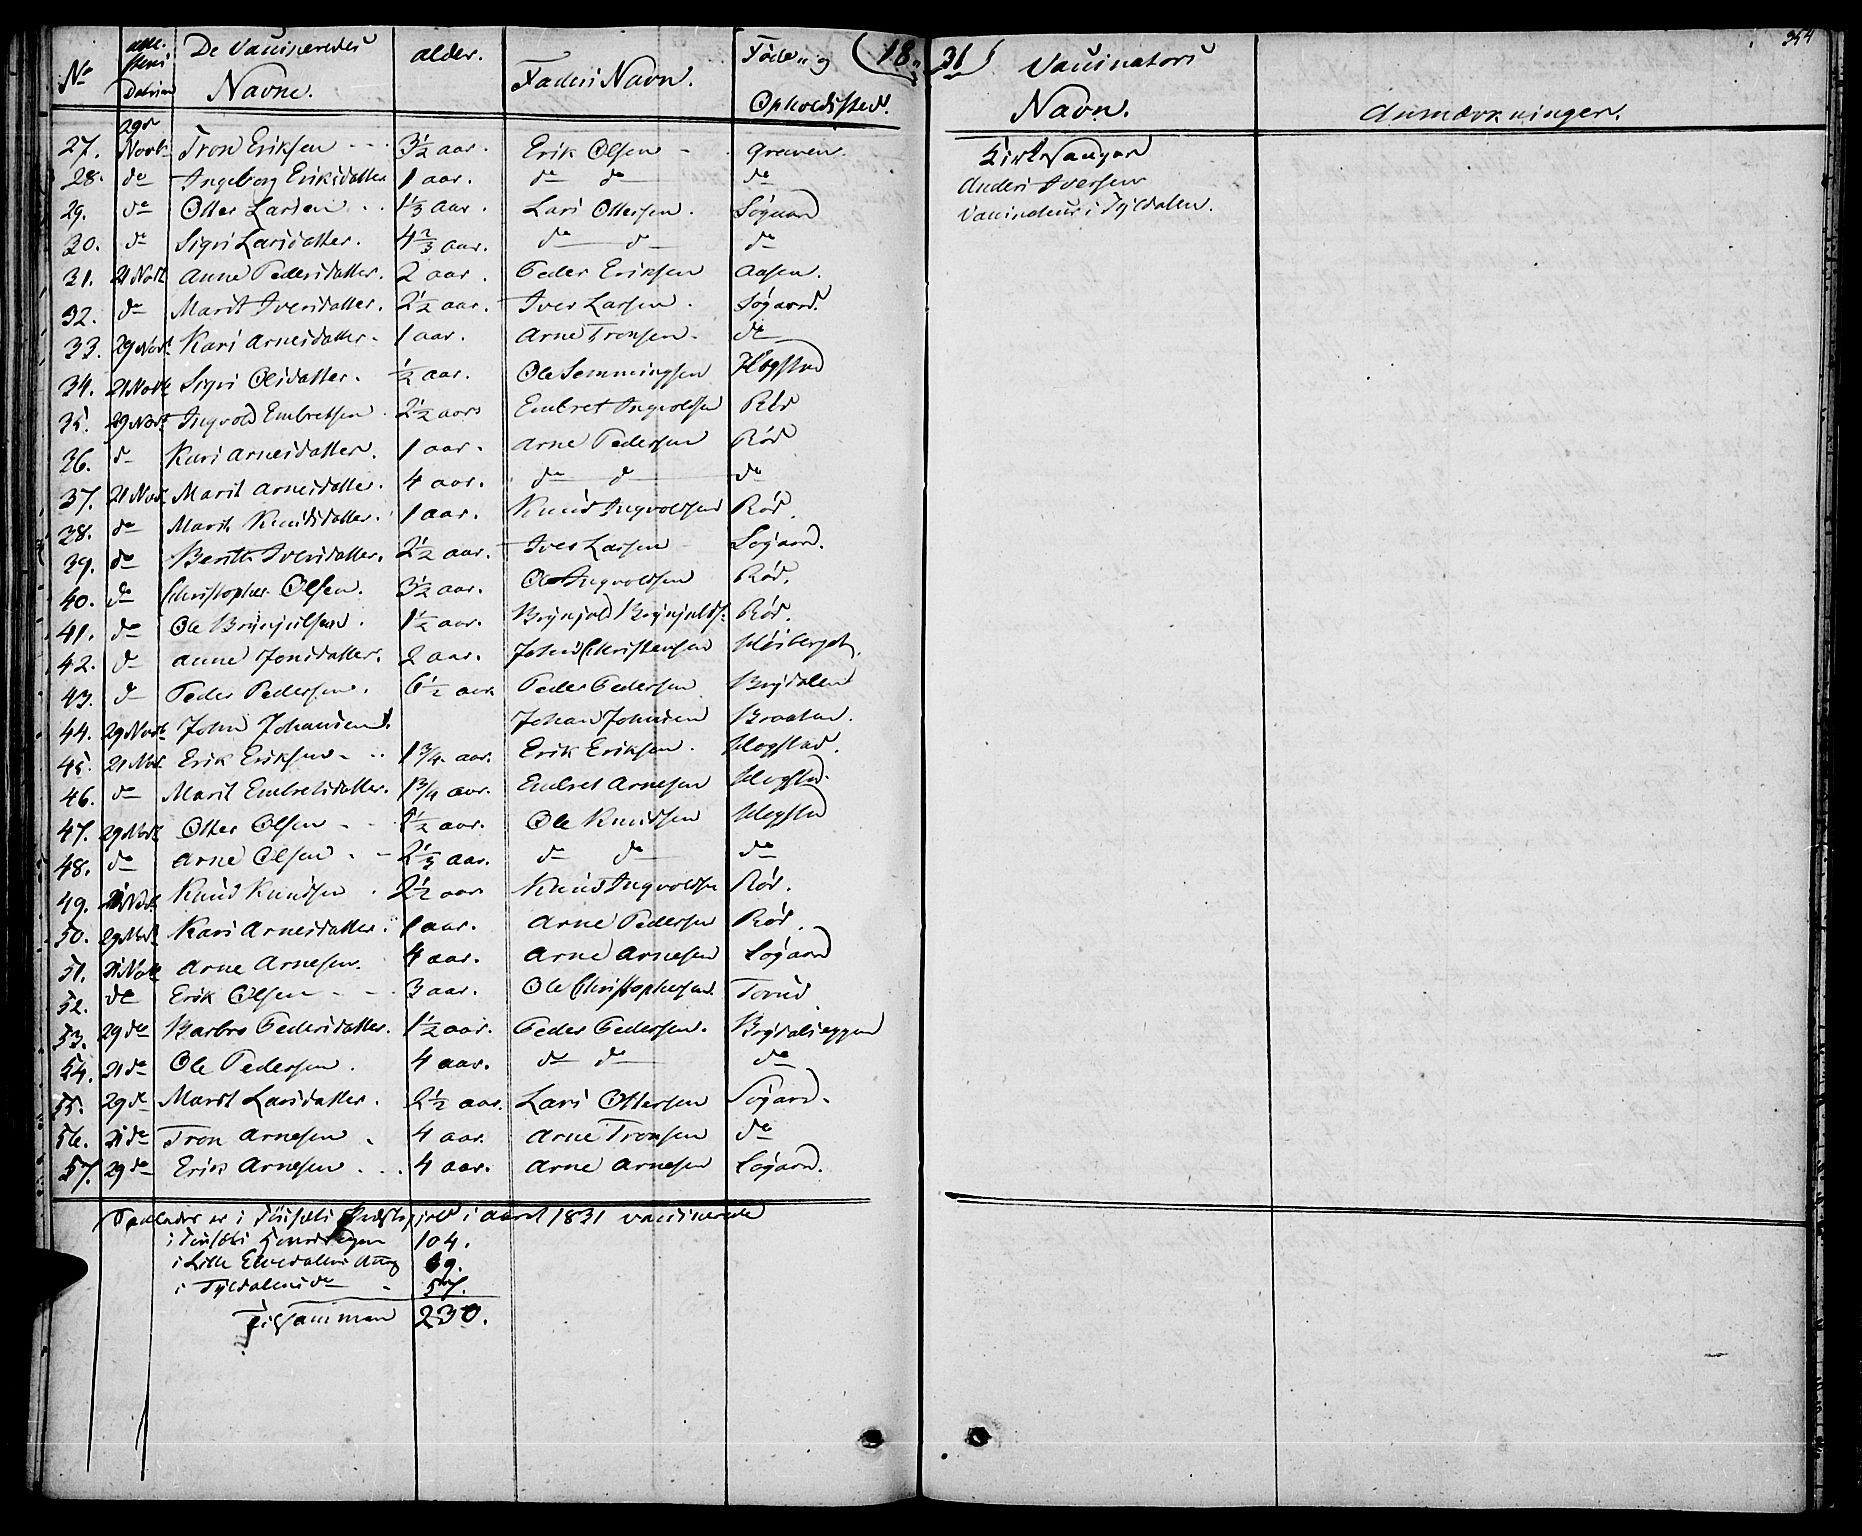 354
No Attestens Datum De Vaccineredes Navne. alder. Faders Navn. Føde og Opholdssted. (18 31) Vaccinators Navn. Anmærkninger.
27. 29de Novbr Tron Eriksen 3½ aar. Erik Olsen Grauen. Kirkesanger
28. do Ingeborg Eriksdatter 1 aar. do do do Anders Iversen
29. do Otter Larsen 1⅓ aar. Lars Ottersen. Søgaard Vaccinateur i Tyldalen.
30. do Sigri Larsdatter. 4⅔ aar. do do do
31. 21 Novb Anne Pedersdatter. 2 aar. Peder Eriksen Aasen.
32. do Marit Iversdatter. 2½ aar. Iver Larsen. Søgaard.
33. 29 Novb Kari Arnesdatter. 1 aar. Arne Tronsen. do
34. 21 Novb Sigri Olsdatter. ½ aar. Ole Semmingsen Hogstad
35. 29 Novb Ingvold Embretsen 2½ aar Embret Ingvoldsen Rød
36. do Kari Arnesdatter. 1 aar. Arne Pedersen Rød
37. 21 Nov Marit Arnesdatter. 4 aar. do do do
38. do Marit Knudsdatter. 1 aar. Knud Ingvoldsen Rød.
39. do Berith Iversdatter. 2½ aar. Iver Larsen Søgaard.
40. do Christopher Olsen. 3½ aar. Ole Ingvoldsen Rød.
41. do Ole Brynjulsen. 1½ aar. Brynjold Brynjulds. Rød.
42. do Anne Jonsdatter. 2 aar. John Christensen
43. do Peder Pedersen. 6½ aar Peder Pedersen Brydalen
44. 29 Novb John Johansen. Johan Johnsen Braaten.
45. 21 Nov. Erik Eriksen 1¾ aar. Erik Eriksen. Hogstad.
46. do Marit Embretsdatter. 1¾ aar. Embret Arnesen Hogstad.
47. 29 Novb Otter Olsen ½ aar. Ole Knudsen Hogstad
48. do Arne Olsen 2⅓ aar. do do do
49. 21 Novb. Knud Knudsen 2½ aar Knud Ingvoldsen Rød.
50. 29 Novb Kari Arnesdatter. 1 aar. Arne Pedersen Rød.
51. 21 Novb Arne Arnesen. 4 aar. Arne Arnesen Søgaard
52. do Erik Olsen 3 aar. Ole Christophersen.
53. 29 do Barbro Pedersdatter. 1½ aar. Peder Pedersen. Brydalseggen
54. 21 do Ole Pedersen. 4 aar. do do do
55. 29 do Marit Larsdatter. 2½ aar. Lars Ottersen Søgaard.
56. 21 do Tron Arnesen 4 aar. Arne Tronsen do
57. 29 do Erik Arnesen 4 aar. Arne Arnesen Søgaard.
Saaledes er i Tønsets Præstegjeld i Aaret 1831 vaccinerede
i Tønsets Hovedsogn 104.
i Lille Elvedalens Annex 69.
i Tyldalens do 57.
Tilsammen 230.